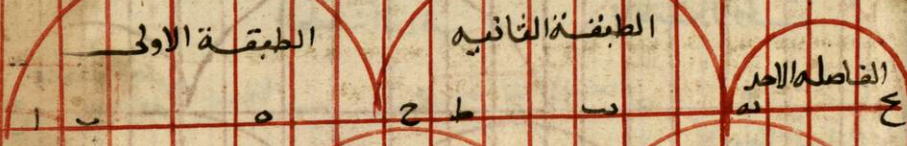 الطبقة الاولى
الطبقة الثانيه
الفاصله الاحد
ا ب ه ح ط يب يه يح